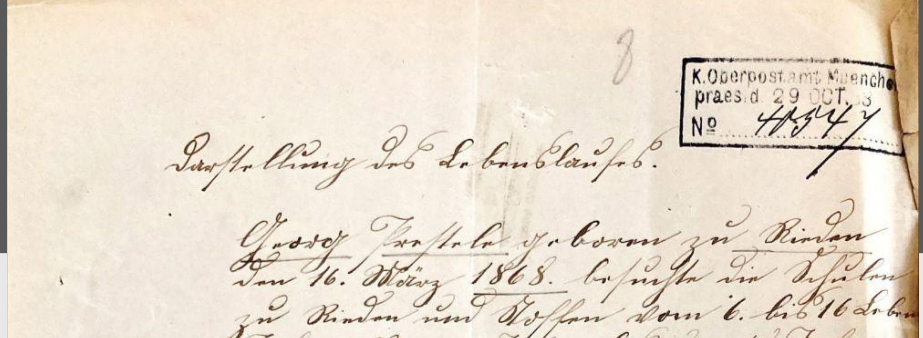 8
K. Oberpostamt Muenche
praes. d. 29 OCT. 88
Nº 40547
Darstellung des Lebenslaufes.
Georg Prestele geboren zu Rieden
den 16. März 1868. besuchte die Schulen
zu Rieden und Stoffen vom 6. bis 16 Leben